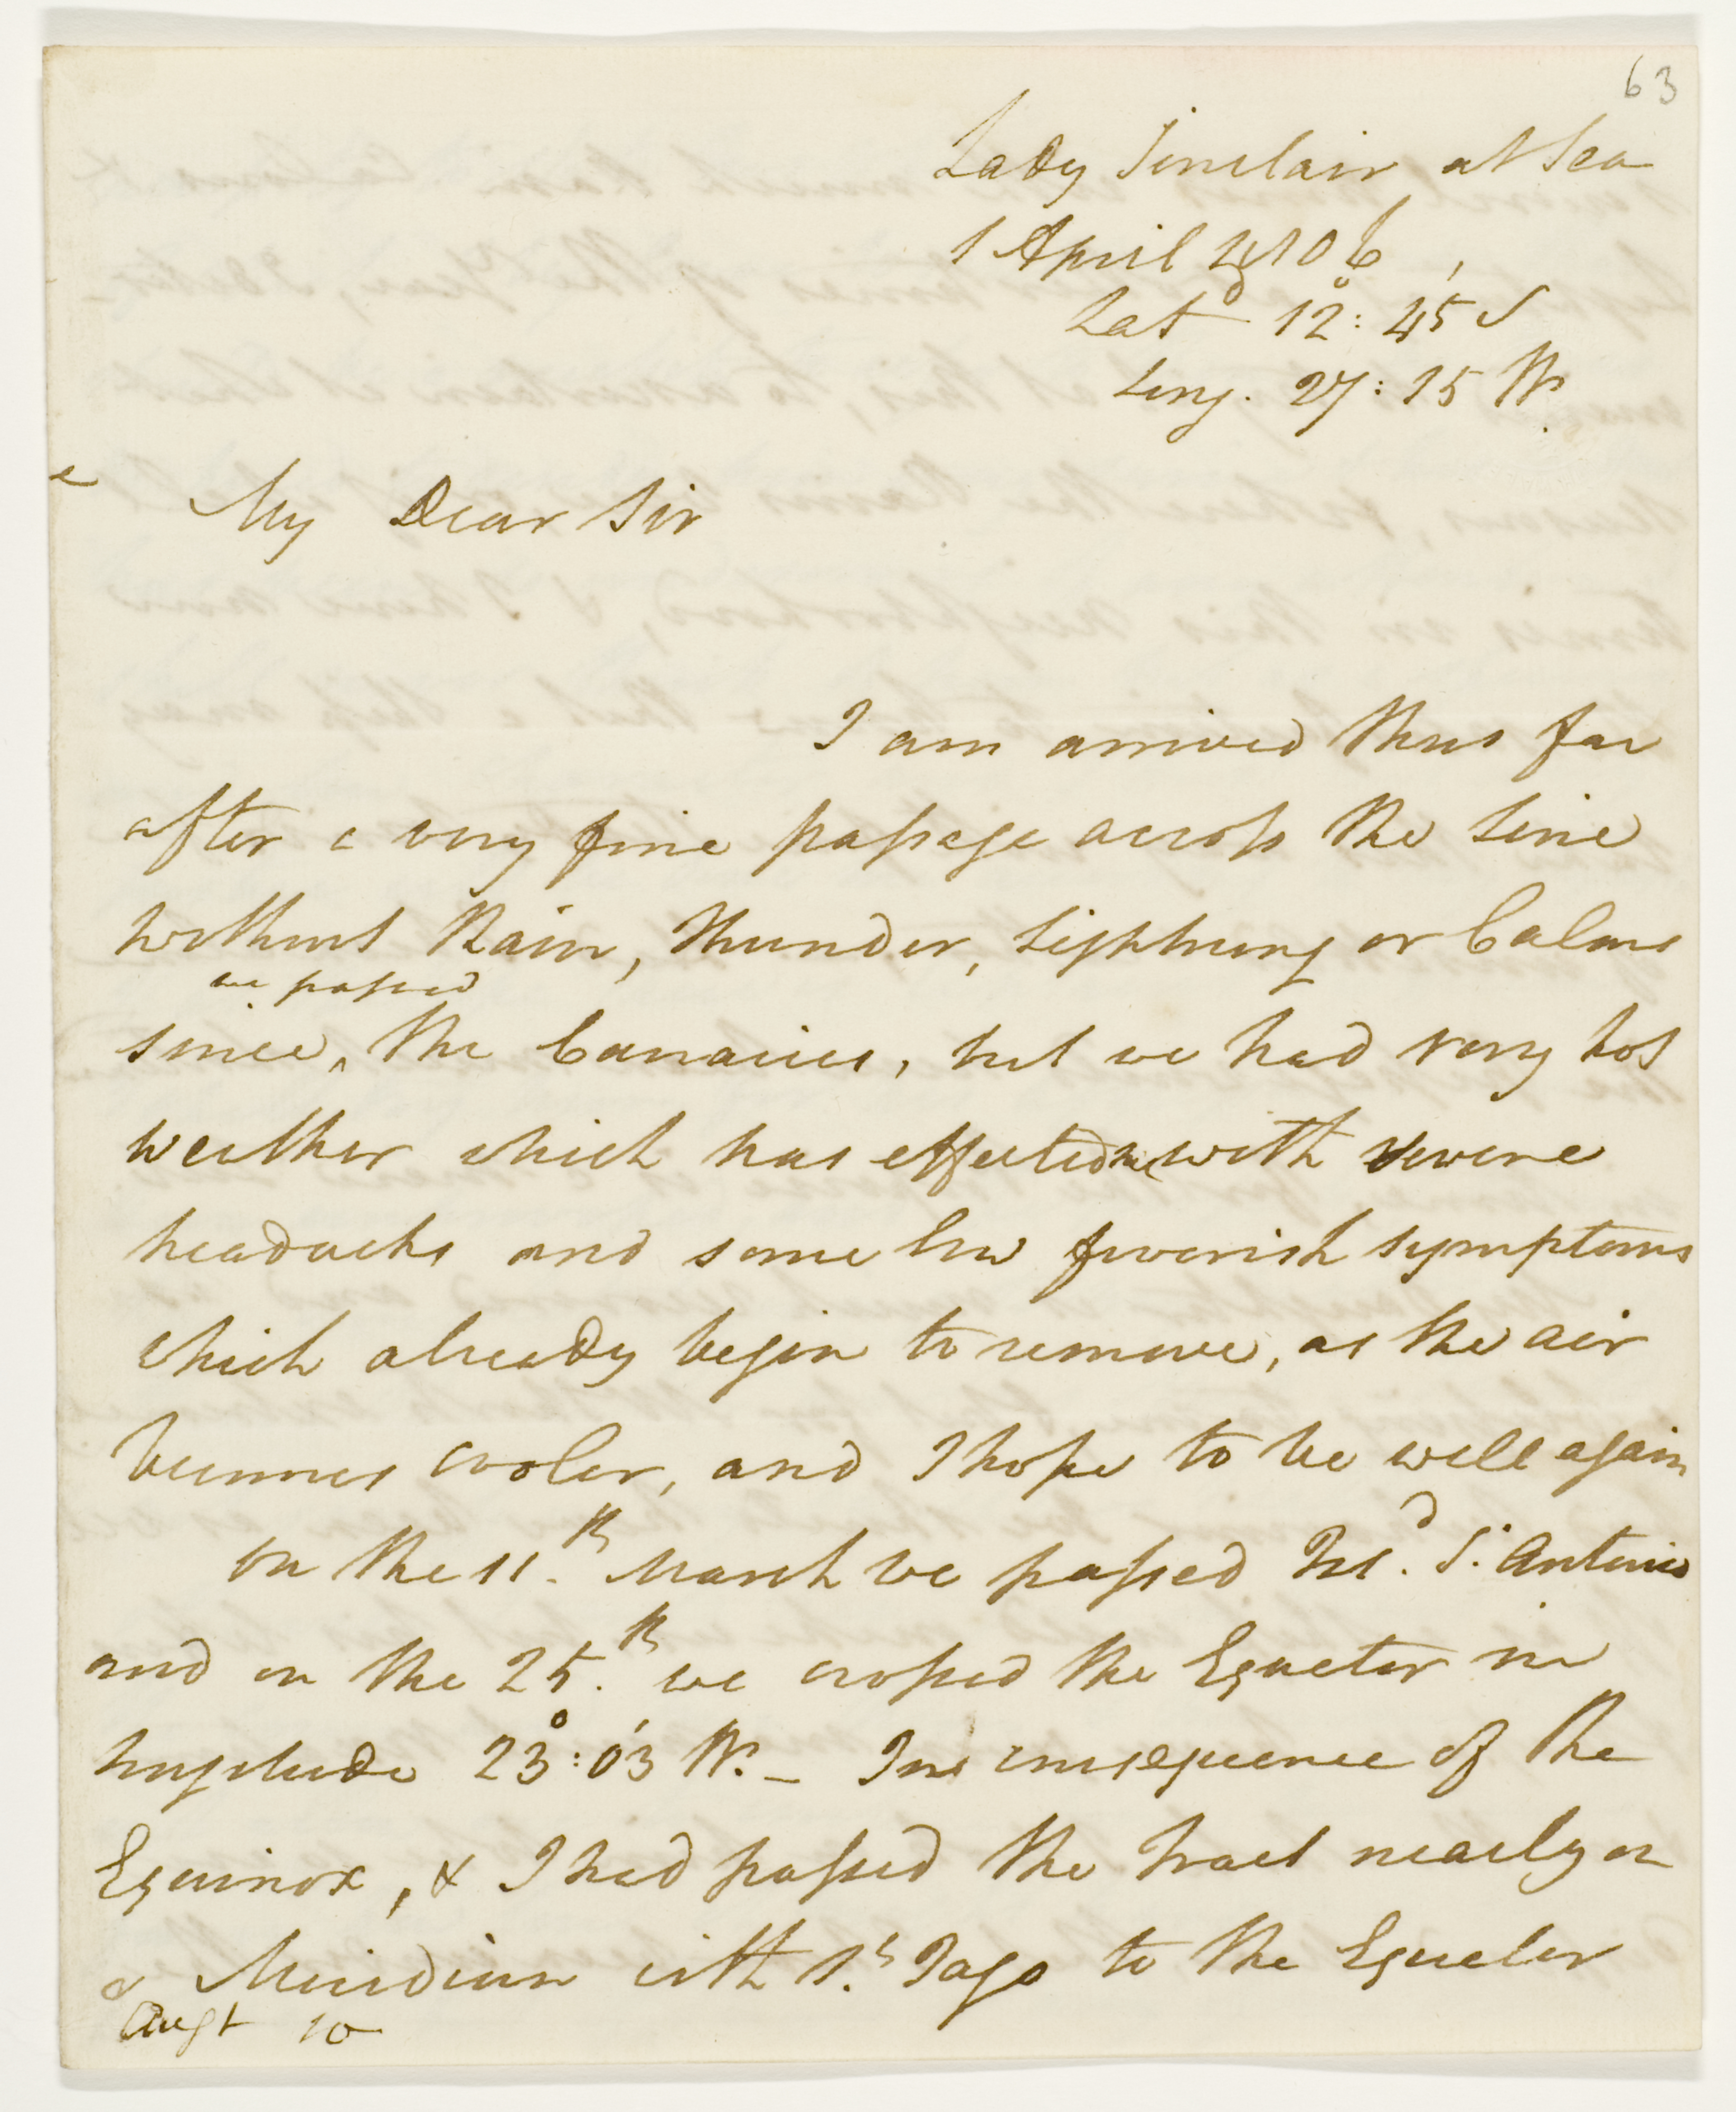 63
Lady Sinclair at Sea
1 April 1806
Latd 12°: 45' S
Long. 27: 15 W.
My Dear Sir
I am arrived thus far
after a very fine passage across the Line
without Rain, thunder, Lightning or Calms
we passed
since ^ the Canaries, but we had very hot
weather which has effected me with severe
headachs and some low feverish symptoms
which already begin to remove, as the air
becomes cooler, and I hope to be well again
on the 11th March we passed Isd. St. Antonio
and on the 25th we crossed the Equator in
Longitude 23°: 03' W. _ In consequence of the
Equinox, & I had passed the tract nearly on
a Meridian with St. Iago to the Equator
Augt 10